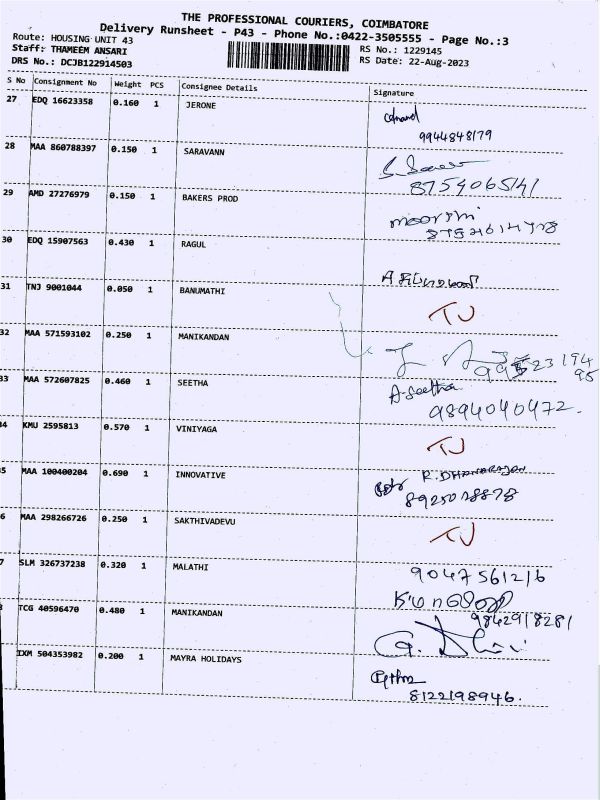 THE PROFESSIONAL COURIERS, COIMBATORE
Delivery Runsheet - P43 - Phone No.:0422-3505555 - Page No.:3
Route: HOUSING UNIT 43
RS No.: 1229145
Staff: THAMEEM ANSARI
RS Date: 22-Aug-2023
DRS No.: DCJB122914503
S No Consignment No Weight PCS Consignee Details Signature
27 EDQ 16623358 0.160 1 JERONE
9944848179
28 MAA 860788397 0.150 1 SARAVANN
8754065141
29 AMD 27276979 0.150 1 BAKERS PROD
30 EDQ 15907563 0.430 1 RAGUL
31 TNJ 9001044 0.050 1 BANUMATHI
TJ
32 MAA 571593102 0.250 1 MANIKANDAN
33 MAA 572607825 0.460 1 SEETHA A.Seetha
9894040472.
4 KMU 2595813 0.570 1 VINIYAGA TJ
5 MAA 100400204 0.690 1 INNOVATIVE R.DHANARAJAN
8925078878
6 MAA 298266726 0.250 1 SAKTHIVADEVU TJ
7 SLM 326737238 0.320 1 MALATHI 9047561216
TCG 40596470 0.480 1 MANIKANDAN 9842918281
IXM 504353982 0.200 1 MAYRA HOLIDAYS
8122198946.